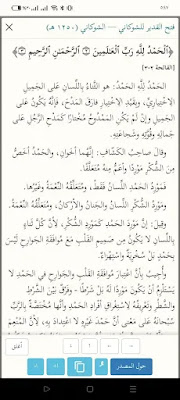 فتح القدير للشوكاني — الشوكاني (١٢٥٠ هـ)
﴿الْحَمْدُ لِلَّهِ رَبِّ الْعَالَمِينَ ۝ الرَّحْمَنِ الرَّحِيمِ ۝﴾
[الفاتحة ٢-٣]
الْحَمْدُ لِلَّهِ الْحَمْدُ: هو الثَّنَاءُ بِاللِّسَانِ عَلَى الْجَمِيلِ
الِاخْتِيَارِيِّ، وَبِقَيْدِ الِاخْتِيَارِ فَارَقَ الْمَدْحَ، فَإِنَّهُ يَكُونُ عَلَى
الْجَمِيلِ وَإِنْ لَمْ يَكُنِ الْمَمْدُوحُ مُخْتَارًا كَمَدْحِ الرَّجُلِ عَلَى
جَمَالِهِ وَقُوَّتِهِ وَشَجَاعَتِهِ.
وَقَالَ صَاحِبُ الْكَشَّافِ: إِنَّهُمَا أَخَوَانِ، وَالْحَمْدُ أَخَصُّ
مِنَ الشُّكْرِ مَوْرِدًا وَأَعَمُّ مِنْهُ مُتَعَلَّقًا.
فَمَوْرِدُ الْحَمْدِ اللِّسَانُ فَقَطْ، وَمُتَعَلَّقُهُ النِّعْمَةُ وَغَيْرُهَا.
وَمَوْرِدُ الشُّكْرِ اللِّسَانُ وَالْجَنَانُ وَالْأَرْكَانُ، وَمُتَعَلَّقُهُ النِّعْمَةُ.
وَقِيلَ: إِنَّ مَوْرِدَ الْحَمْدِ كَمَوْرِدِ الشُّكْرِ، لِأَنَّ كُلَّ ثَنَاءٍ
بِاللِّسَانِ لَا يَكُونُ مِنْ صَمِيمِ الْقَلْبِ مَعَ مُوَافَقَةِ الْجَوَارِحِ لَيْسَ
بِحَمْدٍ بَلْ سُخْرِيَةٌ وَاسْتِهْزَاءٌ.
وَأُجِيبَ بِأَنَّ اعْتِبَارَ مُوَافَقَةِ الْقَلْبِ وَالْجَوَارِحِ فِي الْحَمْدِ لَا
يَسْتَلْزِمُ أَنْ يَكُونَ مَوْرِدًا لَهُ بَلْ شَرْطًا - وَفَرْقٌ بَيْنَ الشَّرْطِ
وَالشَّطْرِ وَتَعْرِيفُهُ لِاسْتِغْرَاقِ أَفْرَادِ الْحَمْدِ وَأَنَّهَا مُخْتَصَّةٌ بِالرَّبِّ
سُبْحَانَهُ عَلَى مَعْنَى أَنَّ حَمْدَ غَيْرِهِ لَا اعْتِدَادَ بِهِ، لِأَنَّ الْمُنْعِمَ
أغلق
حول المصدر